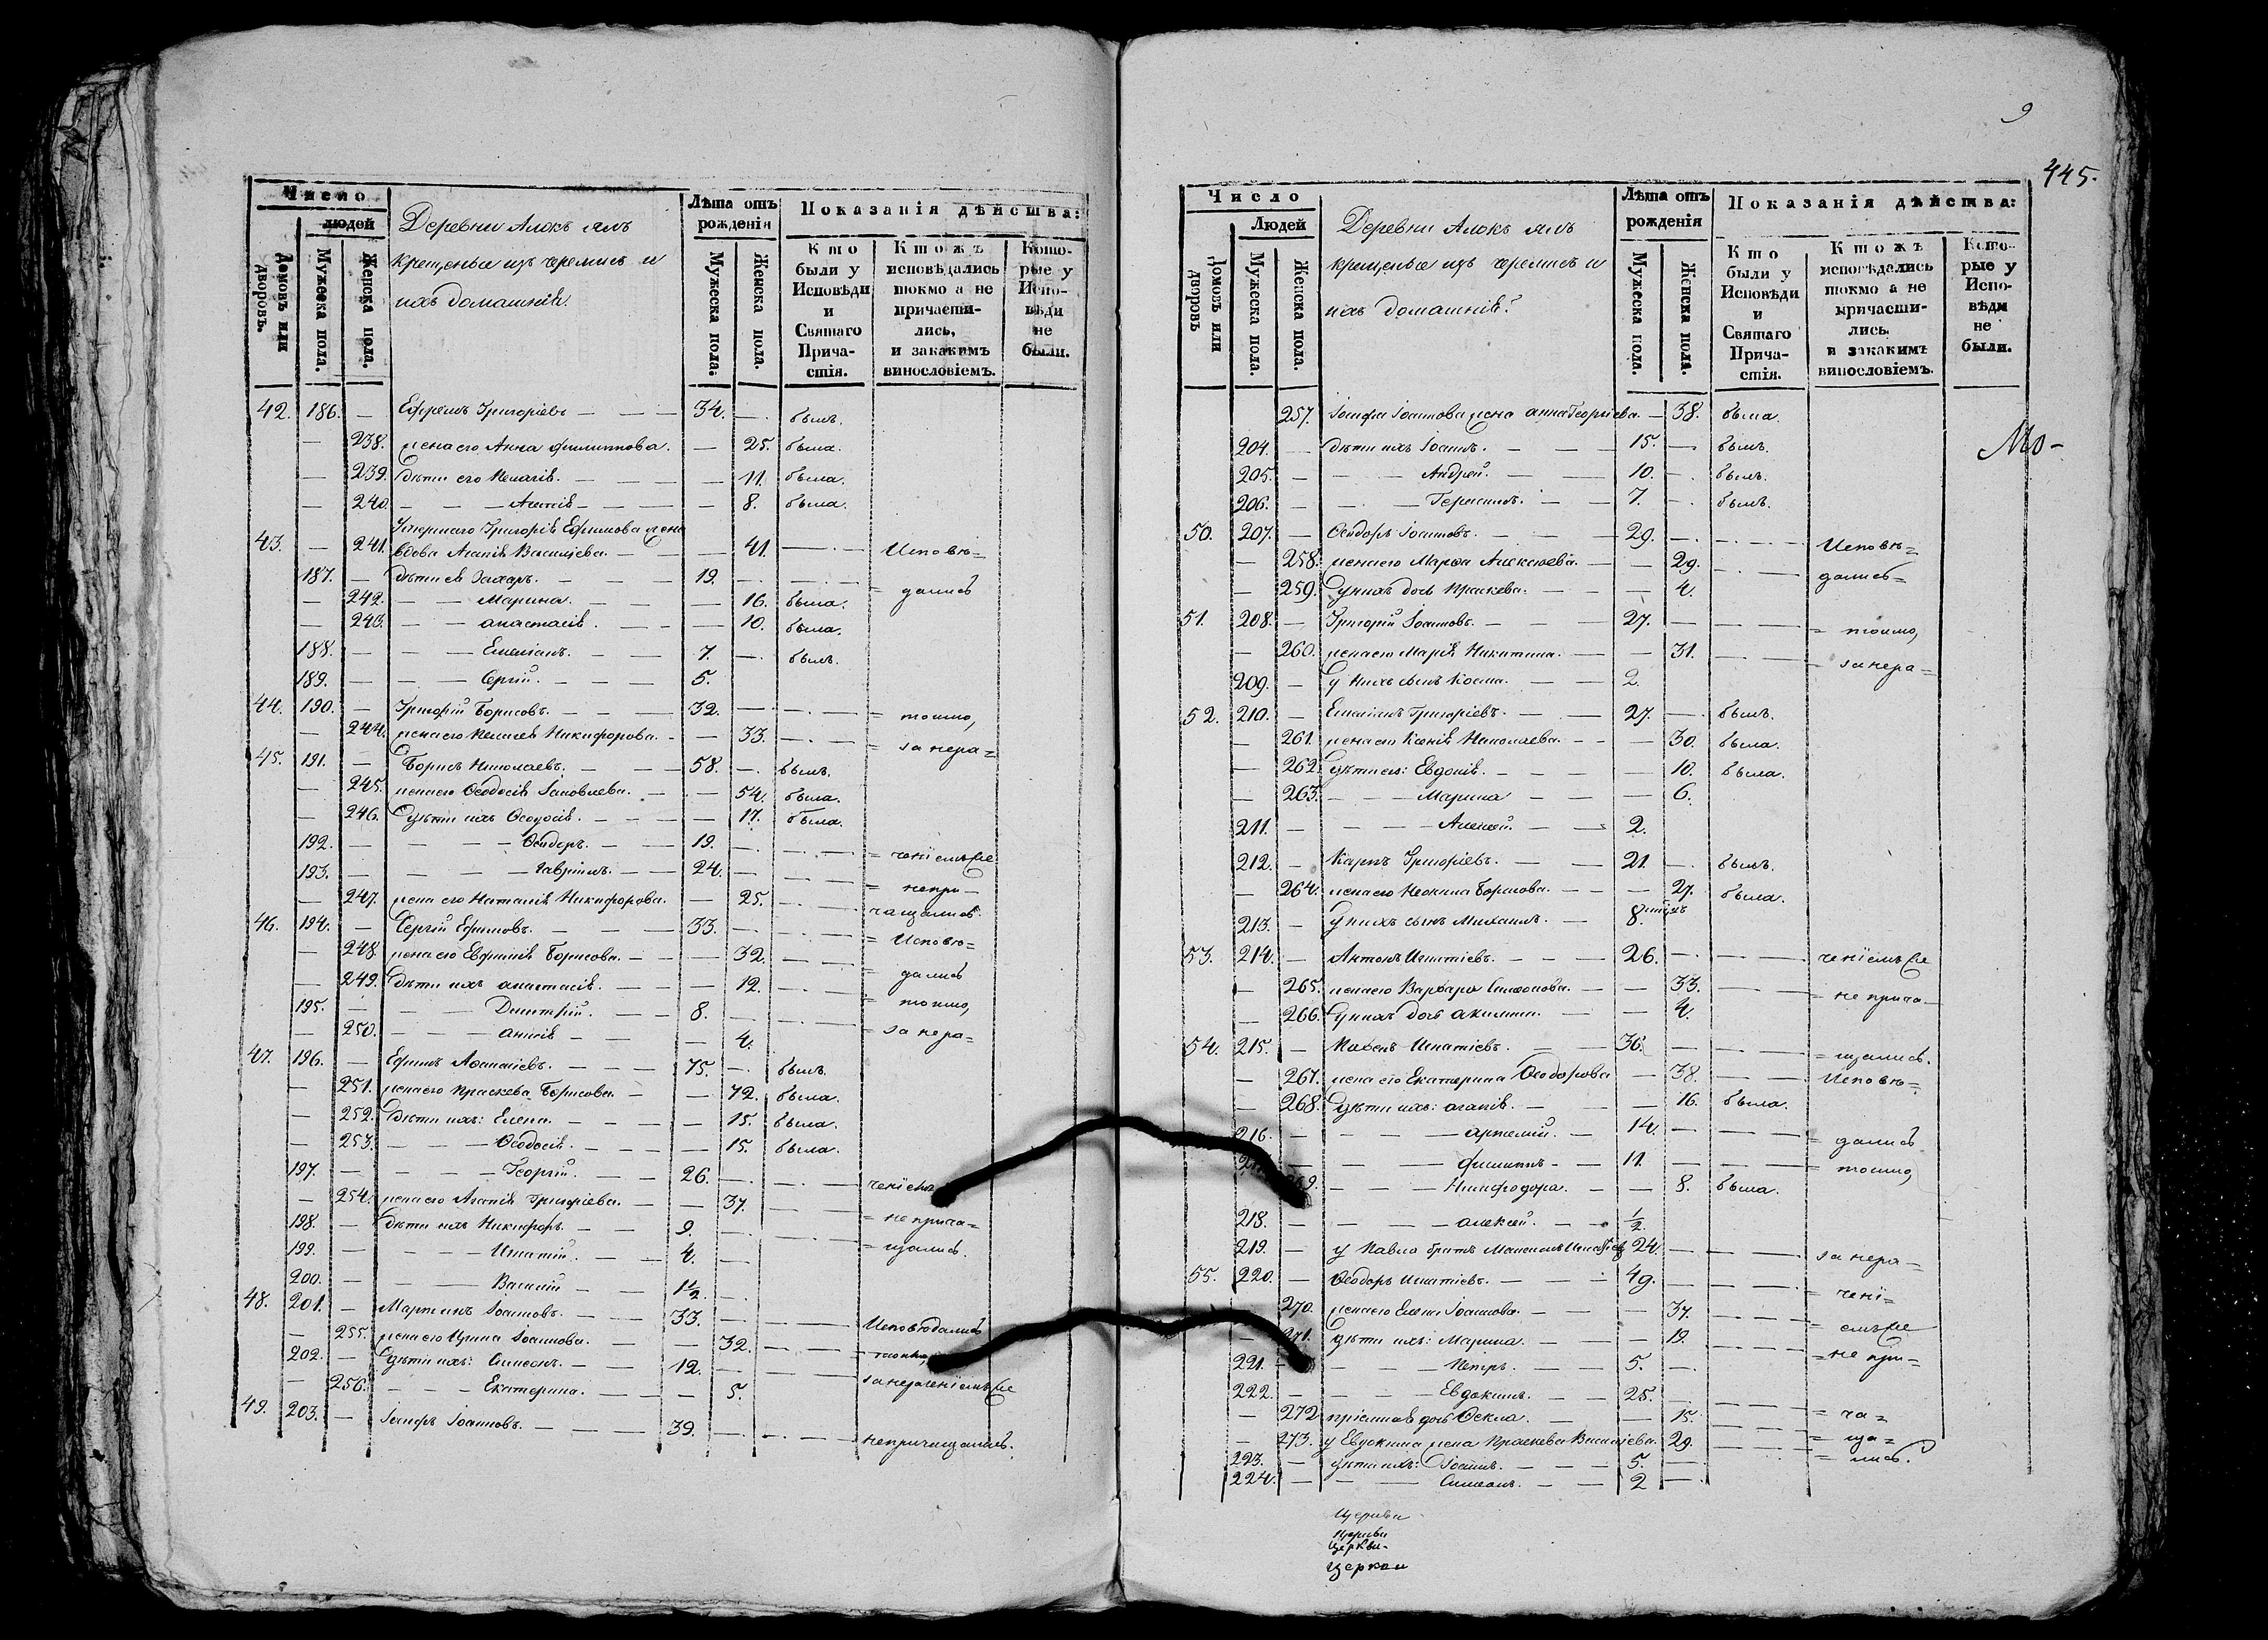 Число
людей
Домовъ или дворовъ.
Мужеска пола.
Женска пола.
Деревни Алокъ ялъ
крещеные изъ черемисъ и
ихъ домашнія.
Лѣта отъ рожденія
Мужеска пола.
Женска пола.
Показанія дѣйства:
Кто были у Исповѣди и Святаго Причастія.
Ктожъ исповѣдались токмо а не причастились, и закакимъ винословіемъ.
Которые у Исповѣди не были.
42. 186. — Ефремъ Григоріевъ — — — 34. — былъ.
— 238. жена его Анна Филиппова. — 25. была.
— 239. дѣти его Пелагія. — — — — 11. была.
— 240. — — — Агапія — — — — 8. была.
Умершаго Григорія Ефимова жена
43. — 241. вдова Агапія Василіева. — — 41. — — Исповѣ=
187. — дѣти ея Захаръ. — — — 19. — — —
— 242. — — Марина. — — — 16. была. = дались
— 243. — — анастасія. — — — 10. была.
188. — — — Емеліанъ. — — 7. — былъ.
189. — — — Сергій. — — — 5.
44. 190. — Григорій Борисовъ. — — — 32. — — — = токмо,
— 244. жена его Пелагея Никифорова. — — 33. — — = за нера=
45. 191. — Борисъ Николаевъ. — — — 58. — былъ.
— 245. жена его Ѳеодосія Іаковлева. — — 54. была.
— 246. дѣти ихъ Ѳеодосія. — — — — 17. была.
192. — — — — Ѳеодоръ. — — 19. — — — = ченіемъ се
193. — — — — Гавріилъ. — — 24. — — — = непри—
— 247. жена его Наталія Никифорова. — 25. — — чащались.
46. 194. — Сергій Ефимовъ. — — — 33. — — — = Исповѣ=
— 248. жена его Евфимія Борисова. — — — 32. — — = дались
— 249. дѣти ихъ анастасія. — — — 12. — — = токмо,
195. — — — Димитрій. — — 8. — — —
— 250. — — — анисія — — — 4. = за нера=
47. 196. — Ефимъ Аѳанасіевъ. — — — 75. — былъ.
— 251. жена его Праскева Борисова. — — 72. была.
— 252. дѣти ихъ: Елена. — — — — 15. была.
— 253. — — — Ѳеодосія. — — — 15. была.
197. — — — — Георгій. — — 26. — — — ченіемъ
— 254. жена его Агапія Григоріева. — — 37. — — = не прича=
198. — дѣти ихъ Никифоръ. — — 9. — — — = щались.
199. — — — — Игнатій. — — 4. —
200. — — — Василій — — 1½. —
48. 201. — Мартинъ Іоанновъ. — — — 33. — — — Исповѣдались
— 255. жена его Ирина Іоаннова. — — 32. — — токмо,
202. — дѣти ихъ: Симеонъ. — — 12. — — — за нераченіемъ се
— 256. — — — Екатерина. — — — 5.
49. 203. — Іосифъ Іоанновъ. — — — — 39. — — — непричащались.
9
445.
Число
Людей
Домовъ или дворовъ
Мужеска пола.
Женска пола.
Деревни Алокъ ялъ
крещеные изъ черемисъ и
ихъ домашнія.
Лѣта отъ рожденія
Мужеска пола.
Женска пола.
Показанія дѣйства:
Кто были у Исповѣди и Святаго Причастія.
Ктожъ исповѣдались токмо а не причастились. и закакимъ винословіемъ.
Которые у Исповѣди не были.
257. Іосифа Іоаннова жена анна Георгіева. — 38. была.
204. — дѣти ихъ Іоаннъ. — — — 15. — былъ.
205. — — — Андрей. — — 10. — былъ.
206. — — — Герасимъ. — — 7. — былъ.
50. 207. — Ѳеодоръ Іоанновъ. — — — 29. — — — Исповѣ=
— 258. жена его Марѳа Алексѣева. — — 29. — — дались=
— 259. у нихъ дочь Праскева. — — — 4.
51. 208. — Григорій Іоанновъ. — — — 27. — — — = токмо,
— 260. жена его Марія Никитина. — — 31. — — = за нера=
209. — у нихъ сынъ Косма. — — 2.
52. 210. — Емеліанъ Григоріевъ. — — 27. — былъ.
— 261. жена его Ксенія Николаева. — — — 30. была.
— 262. дѣти его: Евдокія. — — — — 10. была.
— 263. — — — Марина — — — 6.
211. — — — — Алексѣй. — — 2.
212. — Карпъ Григоріевъ. — — 21. — былъ.
— 264. жена его Неонила Борисова. — — — 27. была.
213. — у нихъ сынъ Михаилъ. — 8.
53. 214. — Антонъ Игнатіевъ. — — — 26. — — — ченіемъ се
— 265. жена его Варвара Симеонова. — — 33. — — = не прича—
— 266. у нихъ дочь акилина. — — 4.
54. 215. — Павелъ Игнатіевъ. — — 36. — — — = щались.
— 267. жена его Екатерина Ѳеодорова — 38. — — Исповѣ=
— 268. дѣти ихъ: агапія. — — — 16. была.
216. — — — — артемій. — 14. — — — = дались
— — — — филиппъ — — 11. — — — = токмо,
— — — Нимфодора. — — 8. была.
218. — — — — алексѣй. — — ½.
219. — у Павла братъ 24. — — — за нера—
55. 220. — Ѳеодоръ Игнатіевъ. — — — 49. — — — = чені=
— 270. жена его Елена Іоаннова. — — — 37. — — емъ се
— 271. дѣти ихъ: Марина. — — — 19. — — =не при=
221. — — — — Петръ. — — 5. —
222. — — — — Евдокимъ. — — 25. — — — = ча=
— 272. пріемная дочь Ѳекла. — — 15. — — = ща=
— 273. у Евдокима жена Праскева Василіева. 29. — — = лись.
223. — дѣти ихъ: Іоаннъ. — — — 5. —
224. — — — Симеонъ. — — 2 —
Церкви
Церкви
Церкви.
Церкви